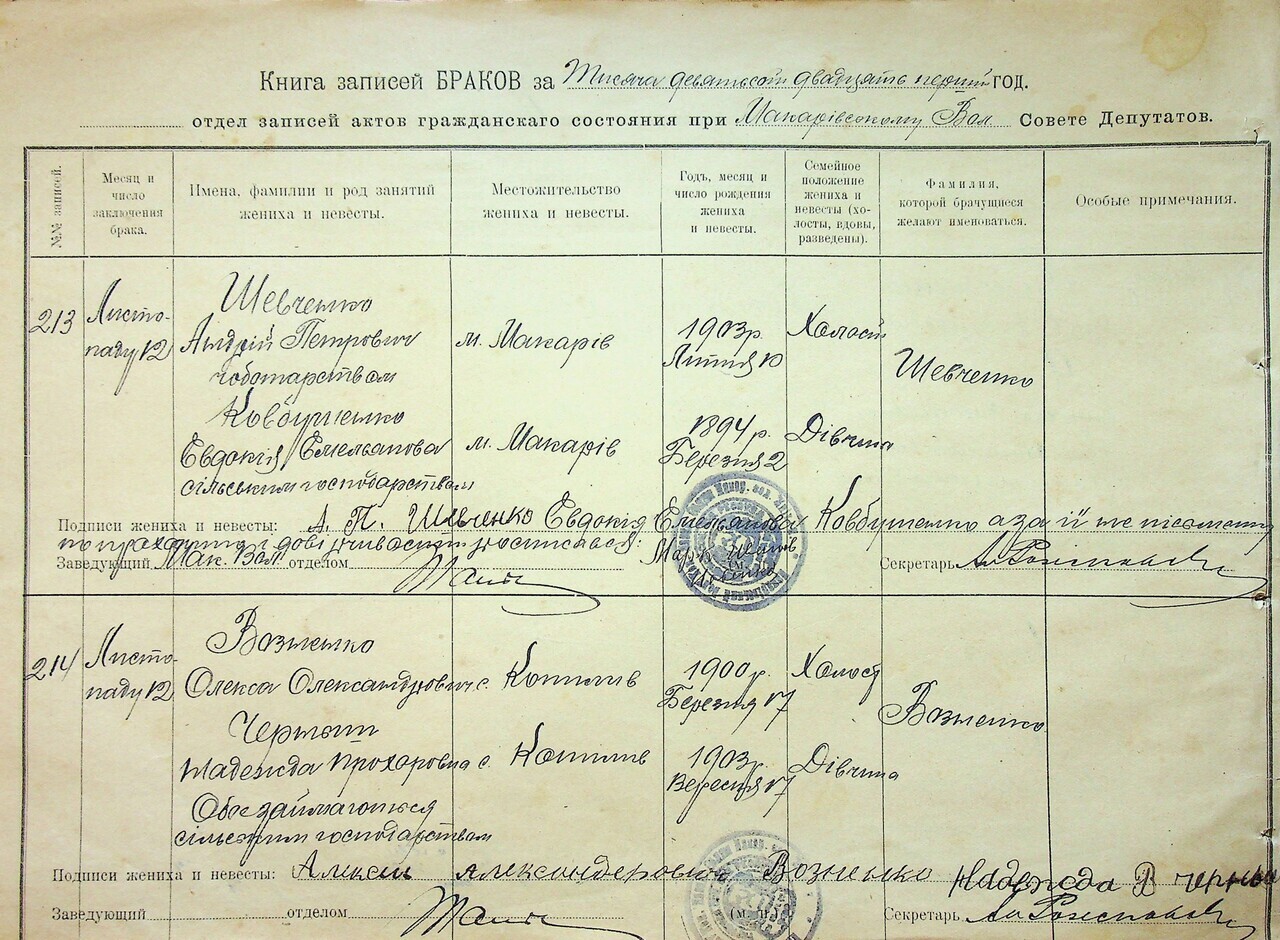 Книга записей БРАКОВ за Тисяча девятьсот двадцять перший ГОД.
отдел записей актов гражданскаго состояния при Макарівському Вол. Совете Депутатов.
№№ записей.
Месяц и число заключения брака.
Имена, фамилии и род занятий жениха и невесты.
Местожительство жениха и невесты.
Годъ, месяц и число рождения жениха и невесты.
Семейное положение жениха и невесты (холосты, вдовы, разведены).
Фамилия, которой брачущиеся желают именоваться.
Особые примечания.
213
Листо-
паду 12
Шевченко
Андрій Петрович
чоботарством
м. Макарів
1903 р.
Липня 10
Холост
Шевченко
Ковбушенко
Євдокія Емельянова
сільським господарством
м. Макарів
1894 р.
Березня 2
Дівчина
Подписи жениха и невесты: А. П. Шевченко Евдокія Емельянова Ковбушенко а за її
Заведующий Мак. Вол. отделом
Секретарь
214
Листо-
паду 12
Возненко
Олекса Олександрович
с. Копилів
1900 р.
Березня 17
Холост
Возненко
Надежда Прохоровна
с. Копилів
1903 р.
Вересня 17
Дівчина
Обоє займаються
сільским господарством
Подписи жениха и невесты: александеровичь Возненко Надежда
Заведующий отделом
(м. п.)
Секретарь